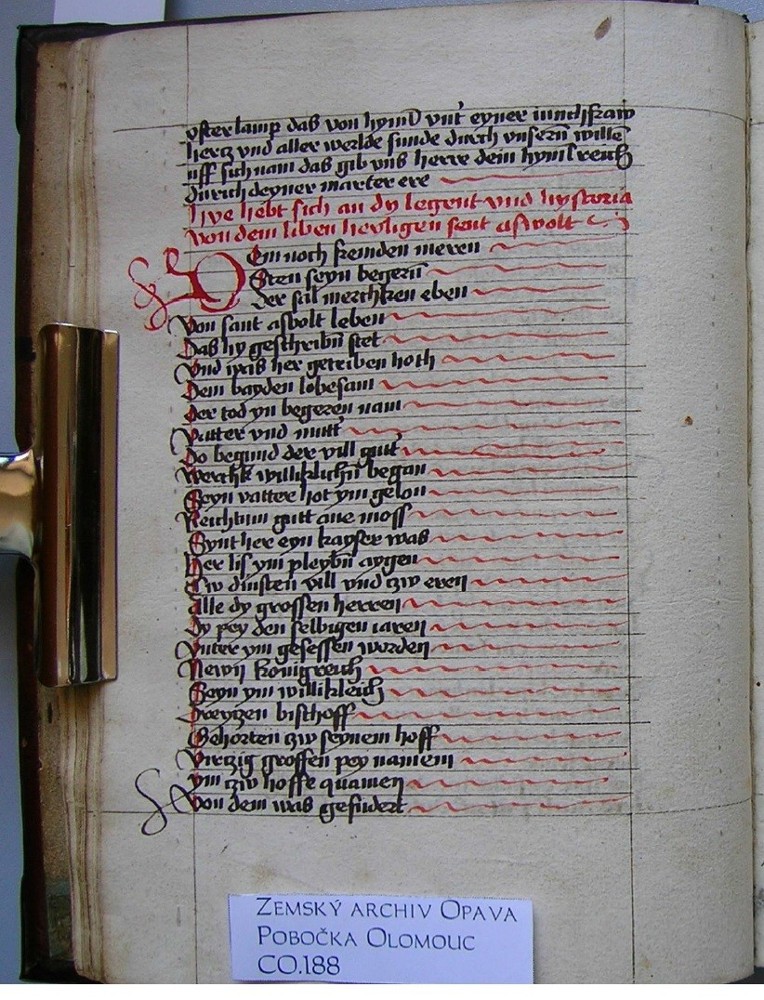 oster lamp das von hymel vnt eyner iunchfraw
hertz vnd aller werlde sunde durch vnsern wille
uff sich nam das gib vns herre dein hymlreich
durich deyner marter ere
hye hebt sich an dy legent vnd hystoria
von dem liben heyligen sent aswolt
Dem noch fremden meren
Sten seyn begern
der sal merchken eben
Von sant asbolt leben
Das hy geschribn stet
Vnd was her getriben hoth
Dem hayden lobesam
der tod yn begeren nam
Vatter vnd mutt
Do begund der vill gutt
Werchk williklichn began
Seyn vatter hot ym gelon
Reichtum gutt ane moss
Synt her eyn kayser was
her lis ym pleybn aygen
Czw dinsten vill vnd czw eren
alle dy grossen herren
dy pey den selbigen iaren
Vnter ym gesessen worden
Newn konigreich
Seyn ym willikleich
Dreyzen bisthoff
Gehorten czw seynem hoff
Virczig groffen pey namem
ym czw hoffe quamen
Von dem was gefudert
ZEMSKÝ ARCHIV OPAVA
POBOČKA OLOMOUC
CO.188